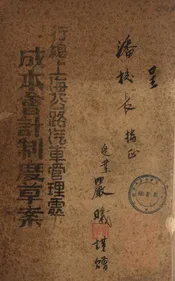 呈
潘校長 指正
受業 嚴曦 謹贈
行總上海公路汽車管理處
成本會計制度草案